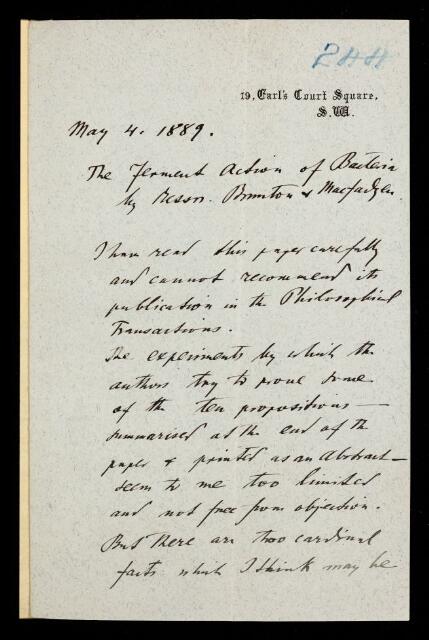 244
19, Earl's Court Square,
S.W.
May 4. 1889.
The Ferment Action of Bacteria
by Messrs. Brunton & Macfadyen
I have read this paper carefully
and cannot recommend its
publication in the Philosophical
Transactions.
The experiments by which the
authors try to prove some
of the ten propositions —
summarised at the end of the
paper & printed as an Abstract —
seem to me too limited
and not free from objection.
But there are two cardinal
facts which I think may be